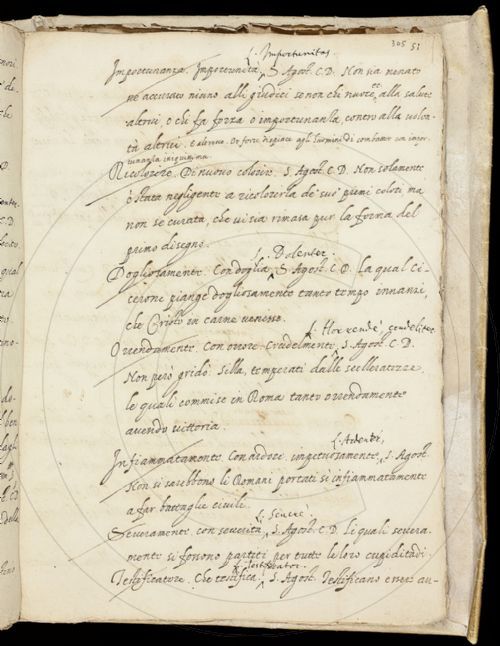 305 51
L. Importunitas.
Importunanza. Importunità, S. Agost. C.D. Non sia menato
ne accusato niuno alli giudici se non che nuoce alla salute
altrui, e chi fa forza o importunanza contro alla volon-
tà altrui. e altrove. O forse dispiace agli huomini di combatter con impor-
tunanza iniquissima
Ricolorare. Di nuovo colorire. S. Agost. C.D. Non solamente
è stata negligente a ricolorarla de suoi primi colori ma
non se curata, che vi sia rimasa pur la forma del
primo disegno.
L. Dolenter.
Dogliosamente. Con doglia, S. Agost. C.D. La qual Ci-
cerone piange dogliosamente tanto tempo innanzi,
che Cristo in carne venesse.
L. Horrende, crudeliter
Orrendamente. Con orrore. Crudelmente, S. Agost. C.D.
Non però gridò Silla, temperati dalle scelleratezze
le quali commise in Roma tanto orrendamente
avendo vittoria.
L. Ardenter,
Infiammatamente. Con ardore impetuosamente, S. Agost.
Non si sarebbono li Romani portati sì infiammatamente
a far battaglie civile.
L. Severe.
Severamente. con severità, S. Agost. C.D. Li quali severa-
mente si fossono partiti per tutte le loro cupiditadi
L. Testificator.
Testificatore. Che testifica, S. Agost. Testificano